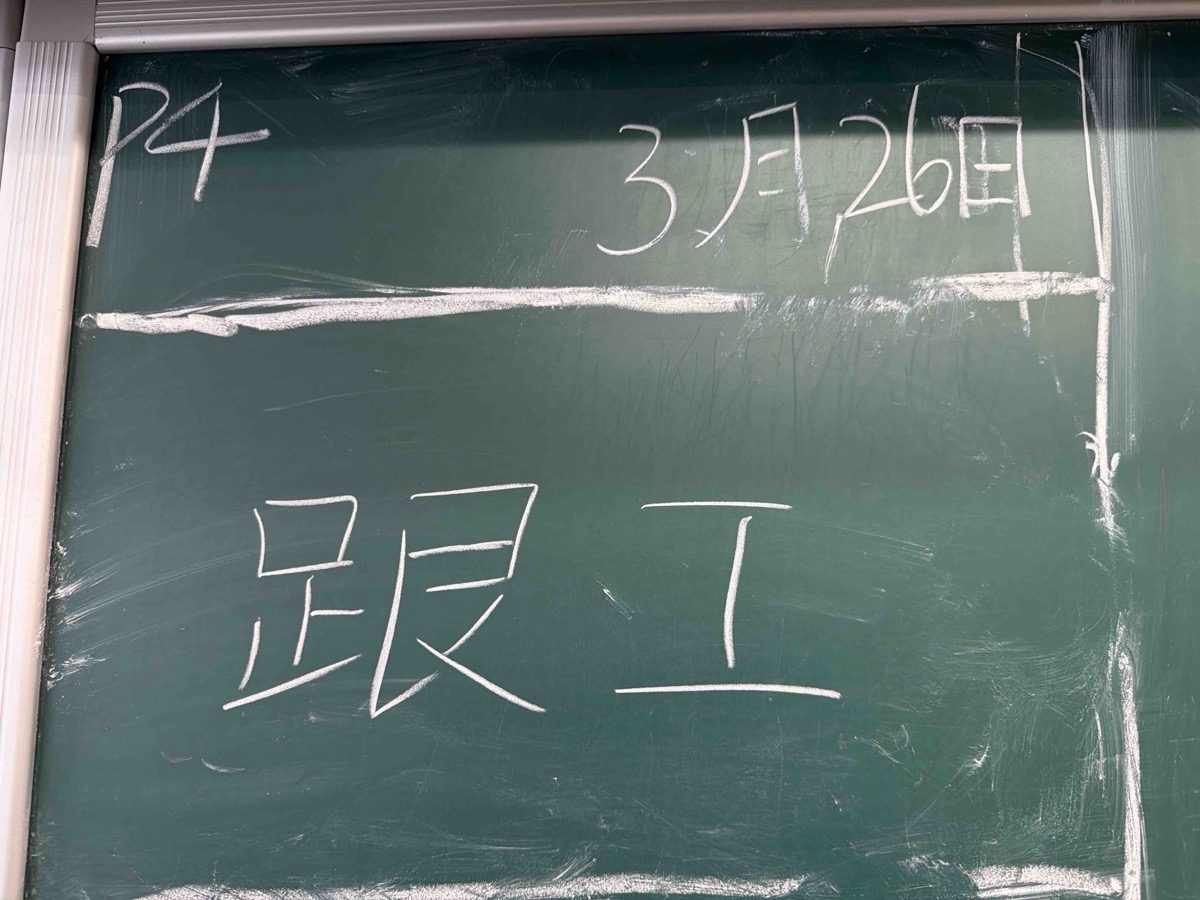 P4 3月26日
跟工